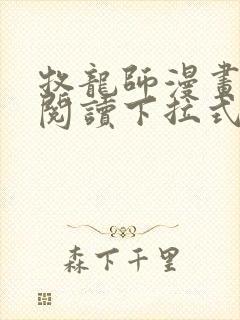 牧龍師漫畫
閱讀下拉式
森下千里